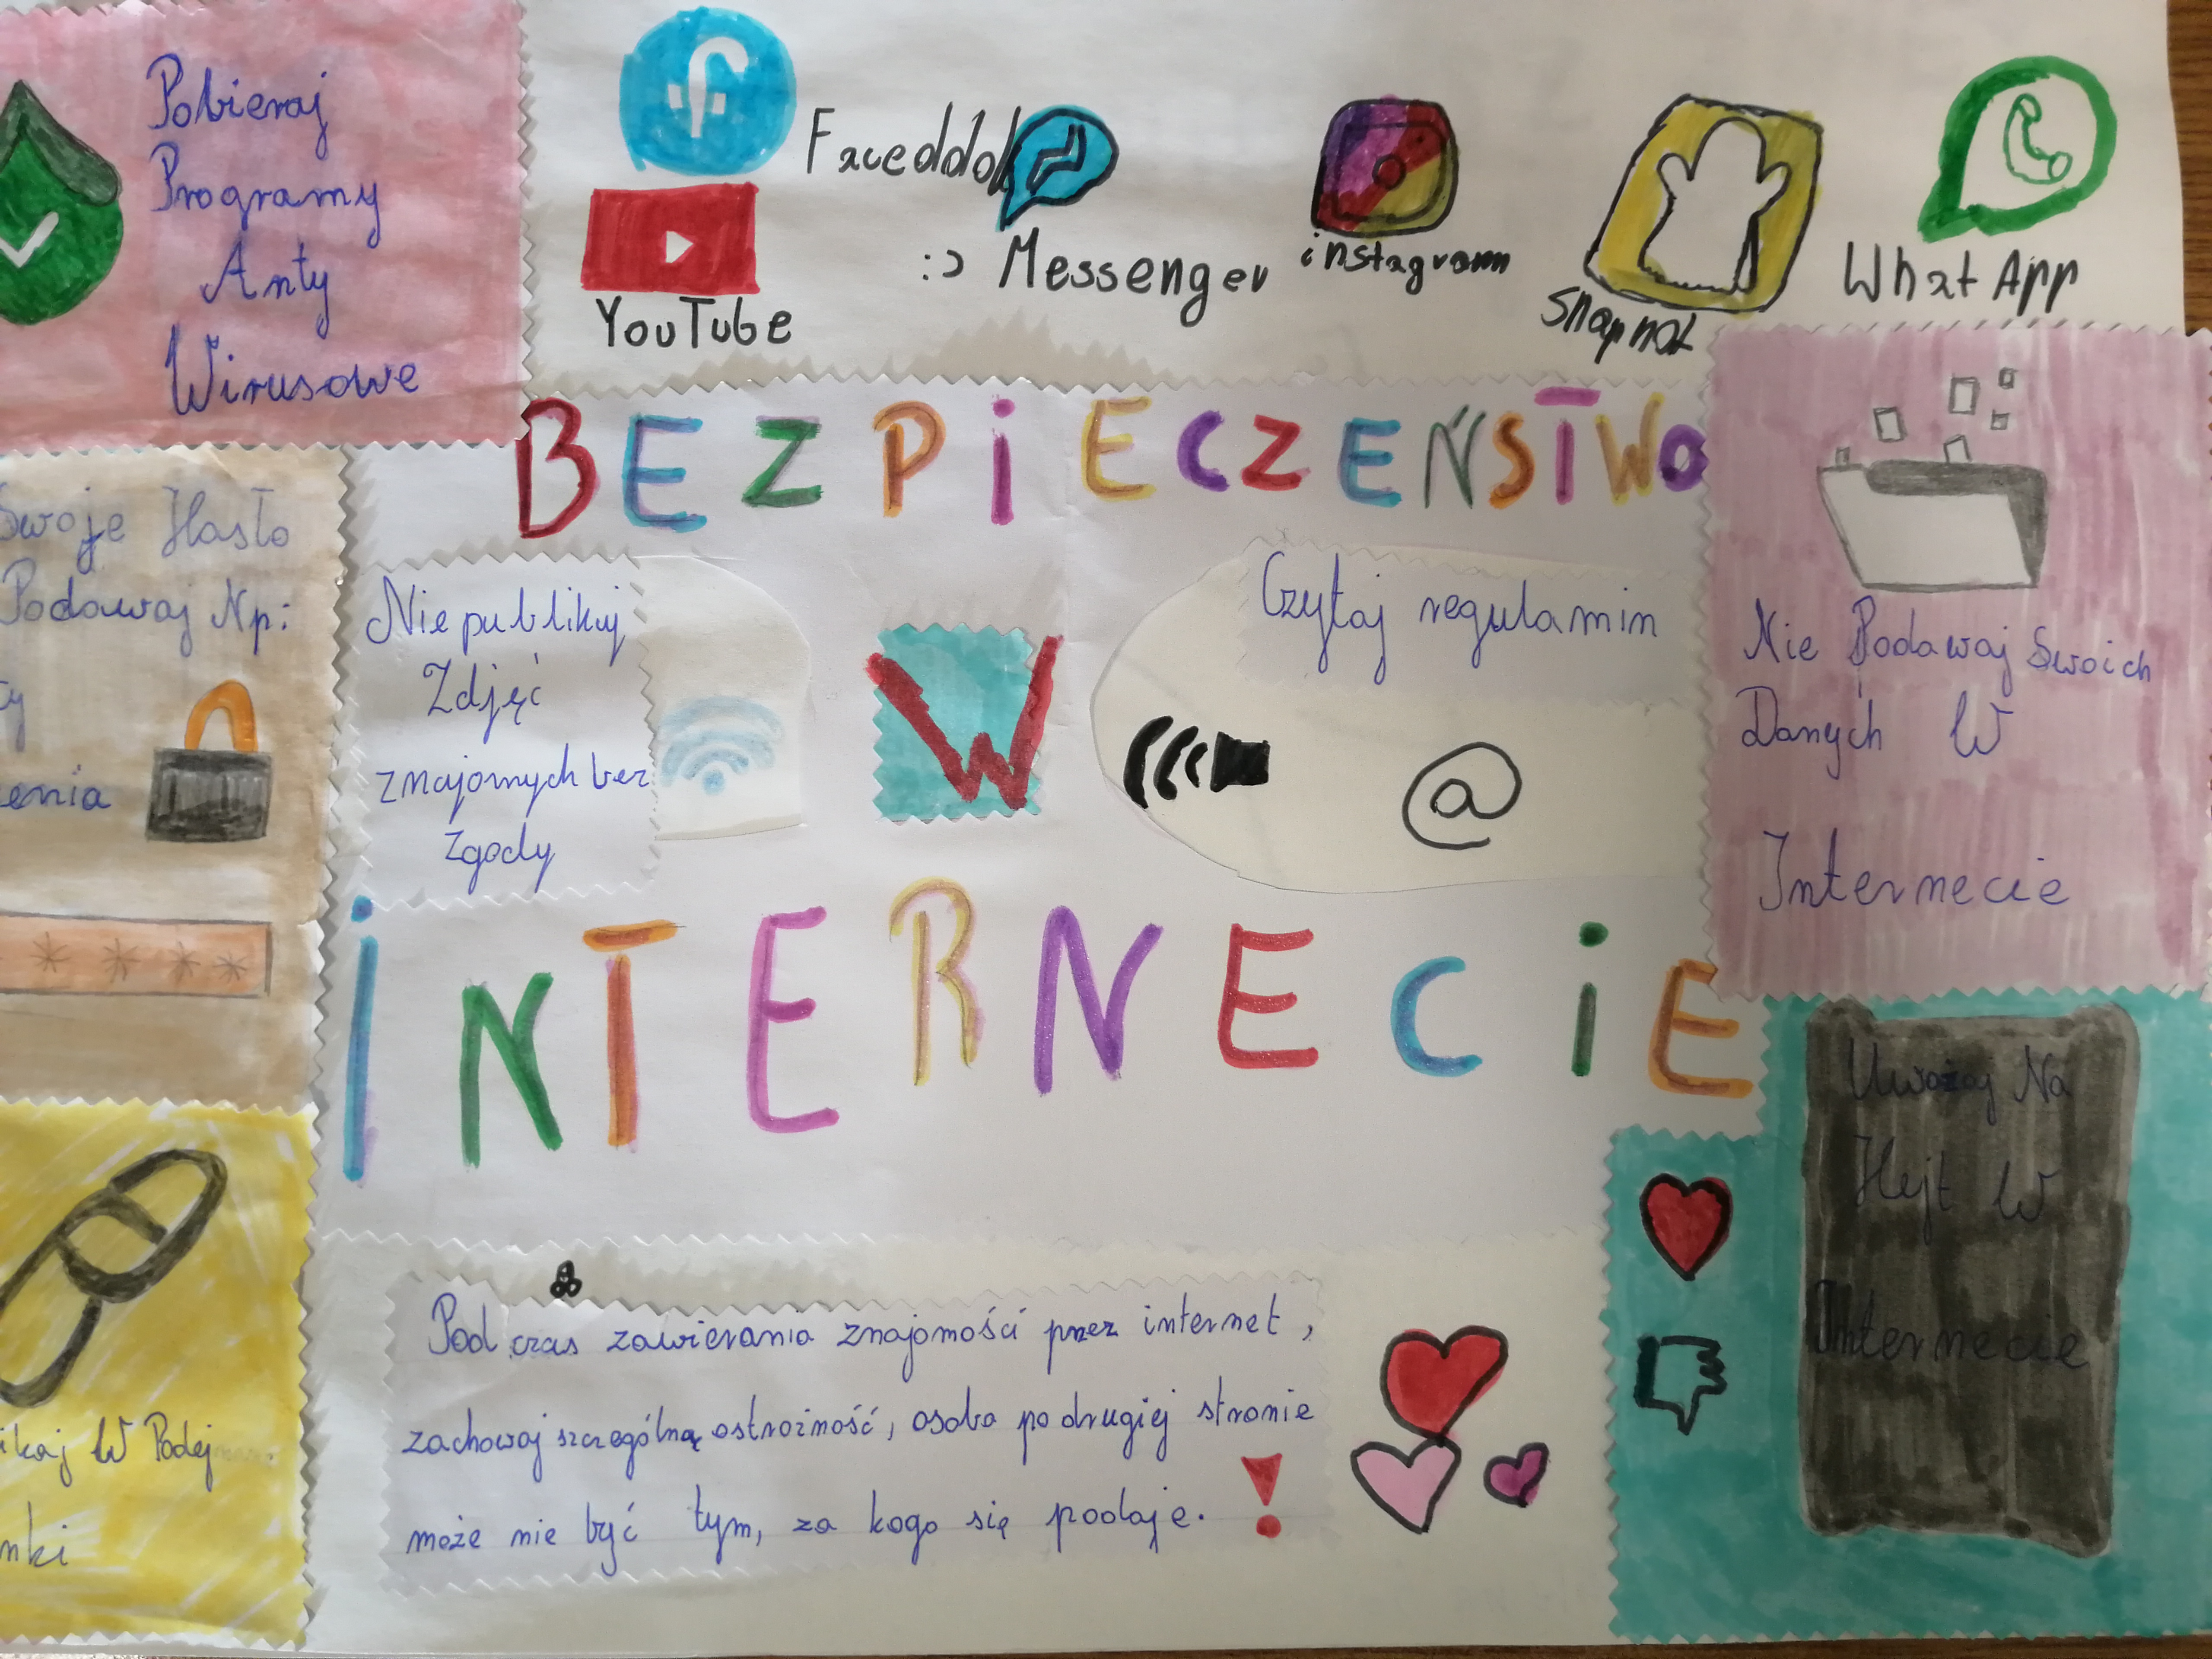 Pobieraj
Programy
Anty
Wirusowe
f
Faceddok
YouTube
:) Messenger
instagram
Snapnot
What App
BEZPIECZEŃSTWO
Swoje Hasło
Podawaj Np:
enia
* * * *
Nie publikuj
Zdjęć
znajomych bez
Zgody
W
Czytaj regulamin
@
Nie Podawaj Swoich
Danych W
Internecie
iNTERNECiE
Uważaj Na
Hejt W
Internecie
ikaj W Podej
nki
Podczas zawierania znajomości przez internet,
zachowaj szczególną ostrożność, osoba po drugiej stronie
może nie być tym, za kogo się podaje. !